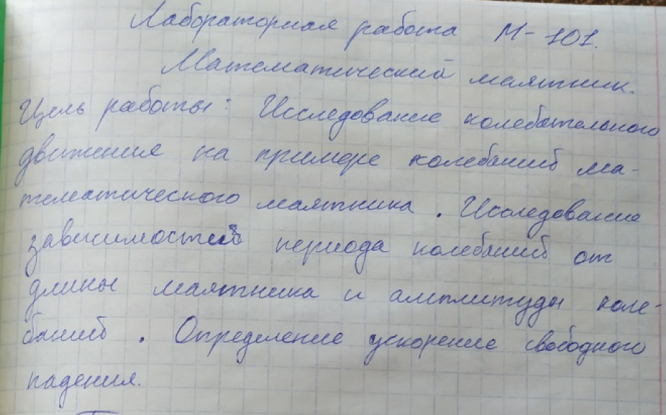 Лабораторная работа М-101.
Математический маятник.
Цель работы: Исследование колебательного
движения на примере колебаний ма-
тематического маятника. Исследование
зависимостей периода колебаний от
длины маятника и амплитуды коле-
баний. Определение ускорение свободного
падения.